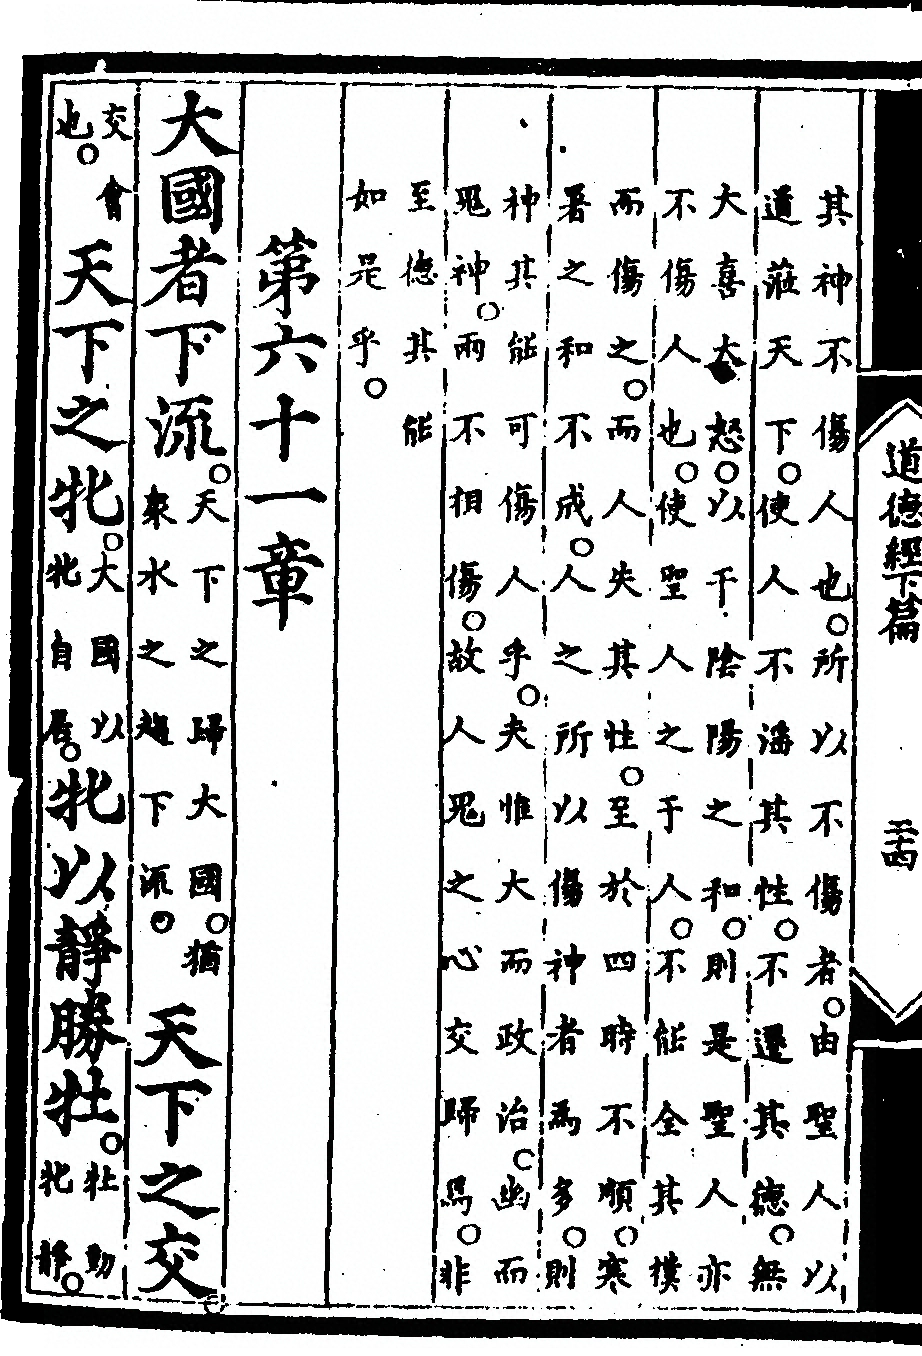 道德經下篇
其神不傷人也。所以不傷者。由聖人以
道蒞天下。使人不滛其性。不遷其德。無
大喜大怒。以干陰陽之和。則是聖人亦
不傷人也。使聖人之于人。不能全其樸
而傷之。而人失其性。至於四時不順。寒
暑之和不成。人之所以傷神者為多。則
神其能可傷人乎。夫惟大而政治。幽而
鬼神。兩不相傷。故人鬼之心交歸焉。非
至德其能
如是乎。
第六十一章
大國者下流。天下之歸大國。猶衆水之趨下流。天下之交。
交會也。天下之牝。大國以牝自居。牝以靜勝牡。牡動牝靜。